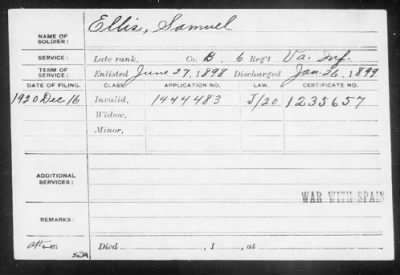 NAME OF SOLDIER: Ellis, Samuel
SERVICE: Late rank, Co. B. 6 Reg't Va. Inf.
TERM OF SERVICE: Enlisted June 27, 1898 Discharged Jan. 26, 1899
DATE OF FILING. CLASS. APPLICATION NO. LAW. CERTIFICATE NO.
1920 Dec 16 Invalid, 1444483 J/20 1235657
Widow,
Minor,
ADDITIONAL SERVICES:
WAR WITH SPAIN
REMARKS:
Died , 1 , at